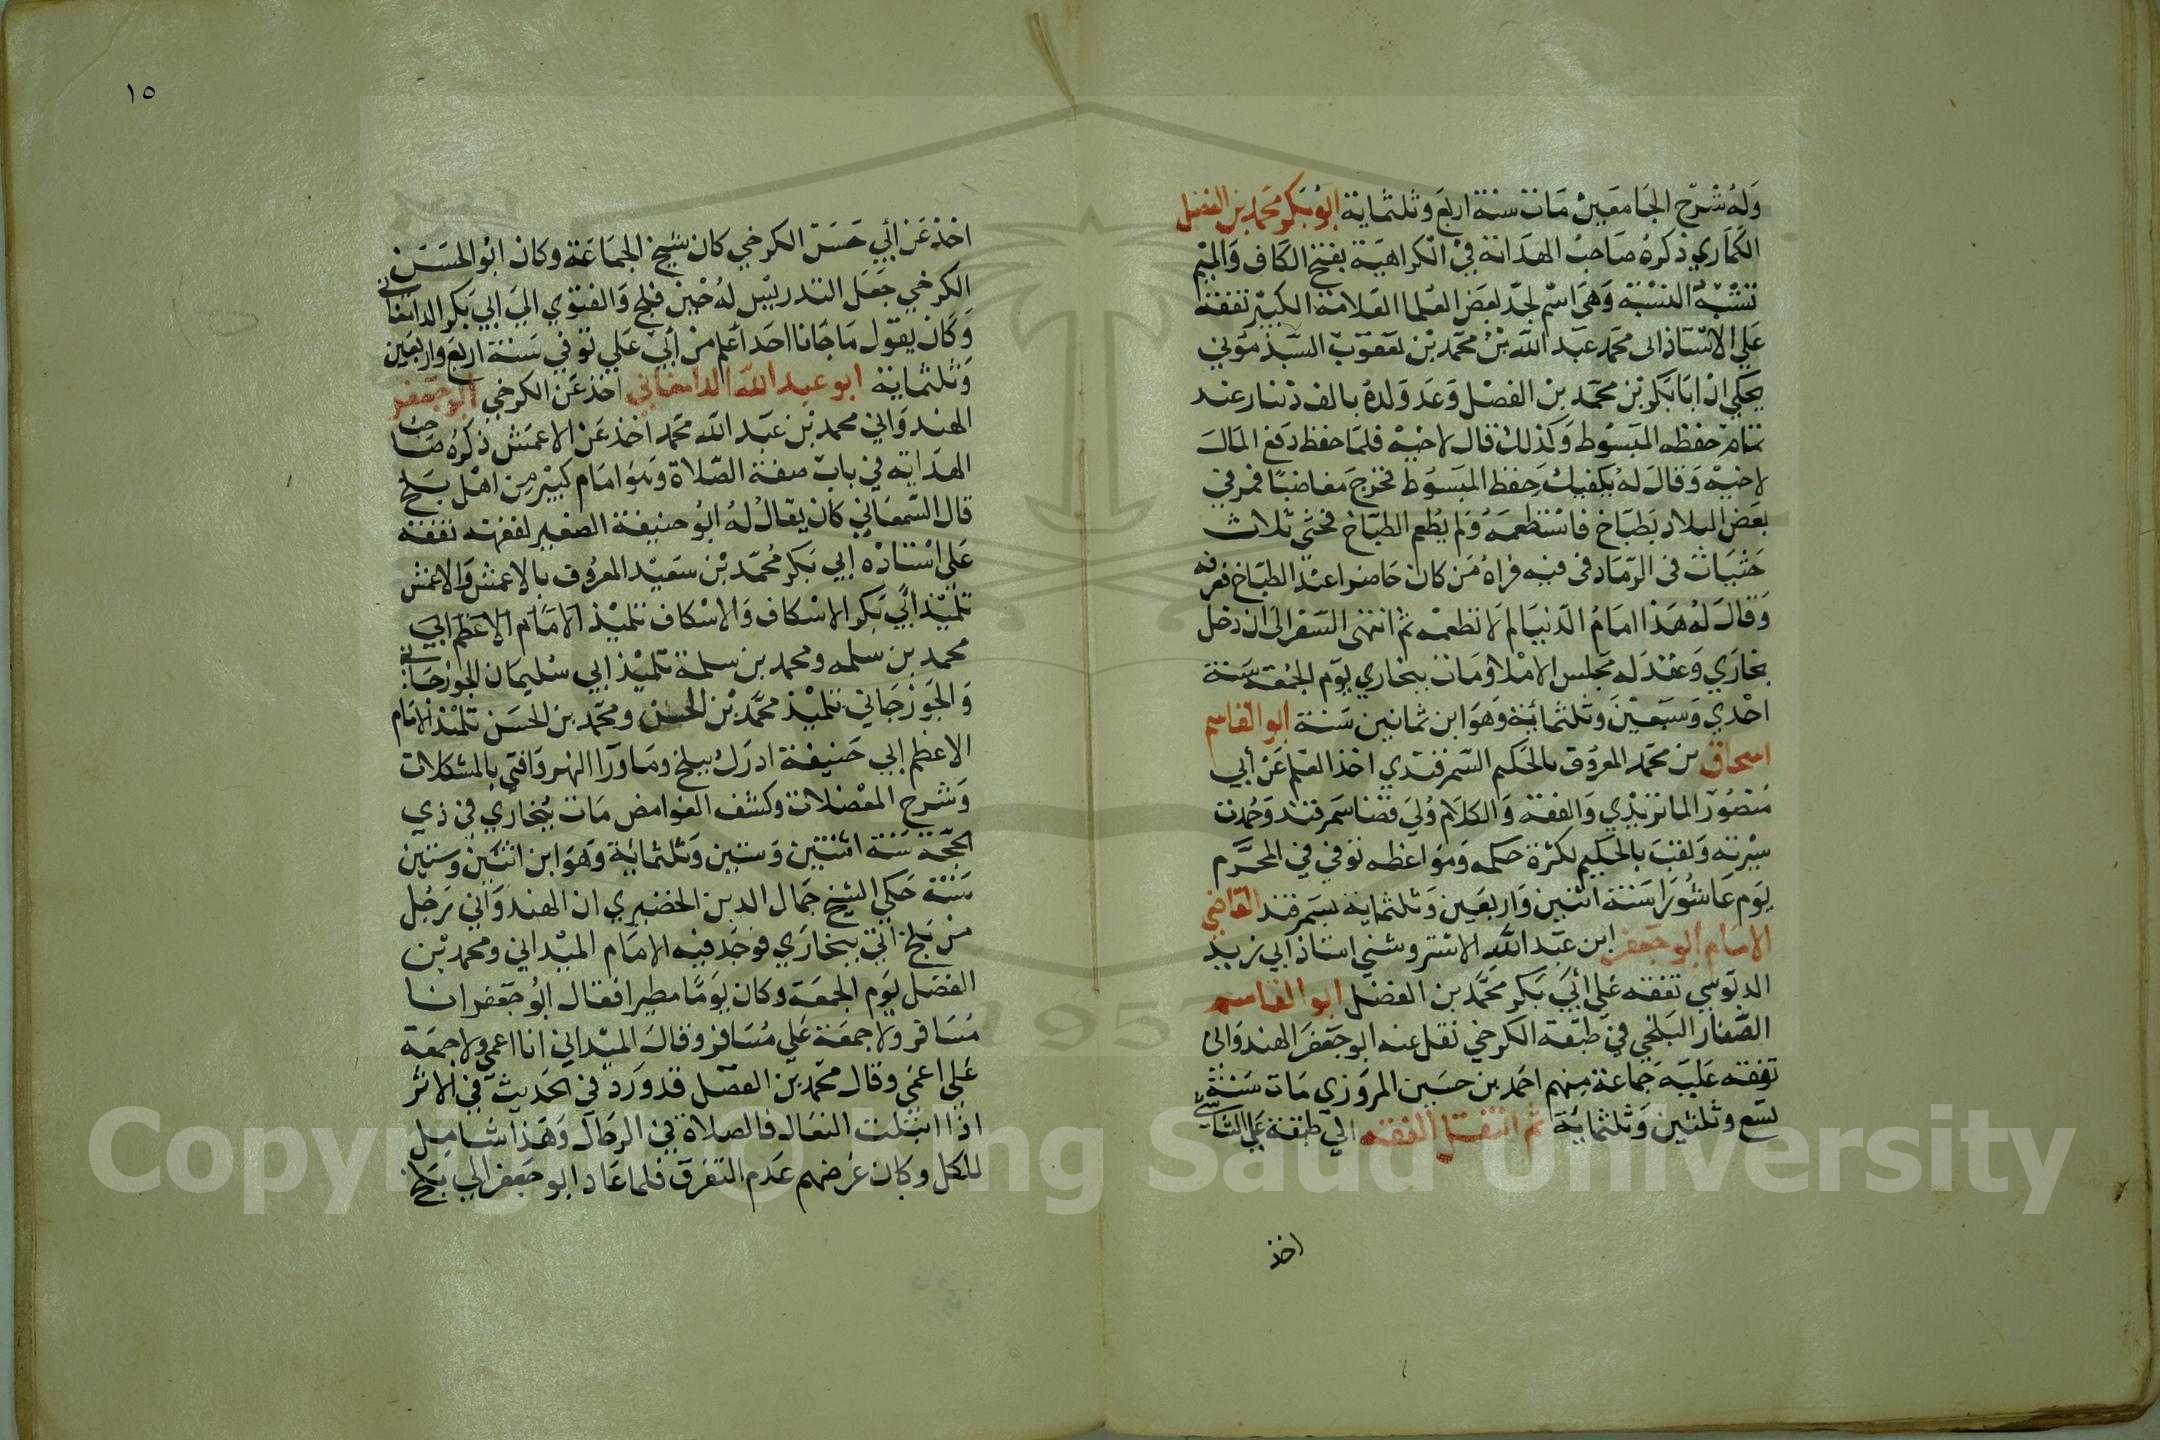 وَلهُ شْرح الجَامعَين مَات سنة اربَع وثلثماية ابُوبَكر محَمد بن الفضل
الكَمَاري ذكرهُ صَاحبُ الهدَاية فِي الكراهيَة بفتح الكَاف وَالميْم
نسْبَة وَهيَ اسْم لجَد بعَض العُلما العَلامة الكبيْر تفقه
عَلي الاسْتَاذ ابى محمد عبَد الله بنْ محَمد بْن يَعقوب السَّبذموني
يحكي ان ابَا بَكر بْن محَمَد بن الفضْل وَعَد وَلدهُ بالف دْينار عند
تمام حفظه المبَسُوط وَكذلك قال لاخيْه فلمَا حفظ دَفع المَال
لاخيْه وَقالَ لهُ يكفيك حَفظ المبَسوط فخرجَ مغاضبًا فمر في
بعَض البلاد بَطبَاخ فاسْتطعمَهُ وَلم يُطعم الطبَّاخ فحثى ثلاث
حَثيَات في الرّمَاد في فيْه فراهُ مَن كان حَاضرا عنْد الطبَاخ فعرفه
وَقالَ لهُ هَذا امَامُ الدّنيَا لم لا تطعمْه ثم انتهى السّفر الى ان دخل
بخاري وَعقدَ له مجَلس الامْلا ومَات ببخاري يوَم الجمُعَة سَنَة
احْدي وَسَبعيْنَ وَثلثمائة وَهوَ ابن ثمانين سَنة ابو القاسم
اسحَاق بن محمَد المعرُوف بالحَكيم السَّمرقندي اخذ العَلم عَن أبي
مَنصُور الماتريدي وَالفقه وَالكلام وُليَ قضا سَمرقند وَحُمدت
سيْرته وَلقبَ بالحكيم لكثرة حكمه وَموَاعظه توفي في المحرَّم
يوَم عَاشُورَا سَنة اثنين وَاربعَين وَثلثماية بسَمرقند القاضي
الامَام ابو جعَفر ابن عبَد الله الاستروشني استاذ ابي زيد
الدبَوسي تفقه عَلي أبيَ بَكر محَمد بن الفضل ابو القاسم
الصَّفار البَلخي في طبَقة الكرخي نقل عنه ابو جَعفرَ الهندوَانى
تفقه عَليَه جَماعَة منهم احمَد بن حسَين المروَزي مَات سَنة
تسَع وثلثين وَثلثمائة ثم انتقل الفقه الي طبقة عَلي الشاشي
اخذ
١٥
اخذ عَن أبي حَسَن الكرخي كان شيخ الجمَاعَة وكانَ ابُو الحسَن
الكرخي جَعَل التدريسْ لهُ حْين فلج وَالفتوي اليَ ابي بَكر الدامغاني
وَكَان يقوَل مَا جَانا احَد اعَلم منْ أبي عَلي توفي سَنة اربعَ واربعَين
وَثلثماية ابو عبد الله الدامغاني اخذ عَن الكرخي ابو جعَفر
الهندوَاني محمد بْن عبَد الله محَمد اخذ عَن الاعمَش ذكرهُ صَاحبُ
الهدَاية في بابَ صفة الصّلاة وَهوَ امَام كبيْر مِن اهْل بَلخ
قال السّمعَاني كان يقالُ لهُ ابُو حنيفة الصغير لفقهه تفقه
عَلي اسْتَاذه ابي بَكر مُحمَّد بْن سَعيْد المعرُوف بالاعمَش وَالاعمَش
تلميْذ ابَي بَكر الاسْكاف وَالاسْكاف تلميْذ الامَام الاعَظم ابي
محمد بن سلمه ومحمد بن سلمة تلميْذ ابي سُليمَان الجوزجَاني
وَالجوَزجَاني تلميْذ محمَّد بْن الحسن ومحَمّد بن الحسَن تلميْذ الامَام
الاعَظم ابي حَنيفة ادرَك ببلخ ومَا ورَآ النهر وَافتي بالمشكلات
وَشرح المعْضلات وكشف الغوَامض مَات ببُخاري في ذي
الحجَّة سَنَة اثنتين وَستين وَثلثمائة وَهوَ ابن اثنين وستين
سَنة حَكي الشيخ جَمال الدين الخضيري ان الهندوَاني رَجُل
من بَلخ اتي ببخاري فوَجَد فيْه الامَام الميْداني ومحمد بْن
الفضَل يوَم الجمعَة وكان يوَمًا مطيرا فقال ابُو جَعفر انا
مُسَافر ولا جمعَة عَلي مُسَافر وقالَ الميْداني انا اعمي ولا جمعَة
عَلي اعمَي وقال محَمد بن الفضَل قد ورَدَ في الحَديث في الاثر
اذا ابتلت النعَال فالصلاة في الرحَال وَهَذا شامِل
للكل وكان غرضهم عَدم التفرق فلما عَاد ابو جَعفر الي بلخ